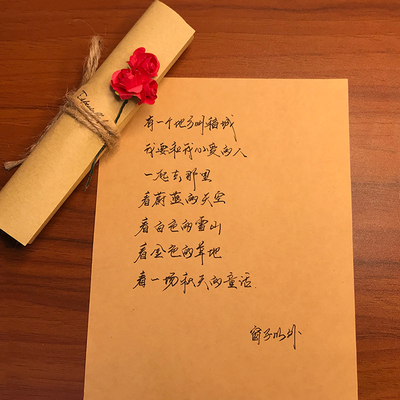 有一个地方叫稻城
我要和我心爱的人
一起去那里
看蔚蓝的天空
看白色的雪山
看金色的草地
看一场秋天的童话